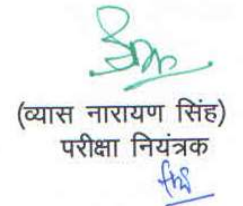 (व्यास नारायण सिंह)
परीक्षा नियंत्रक